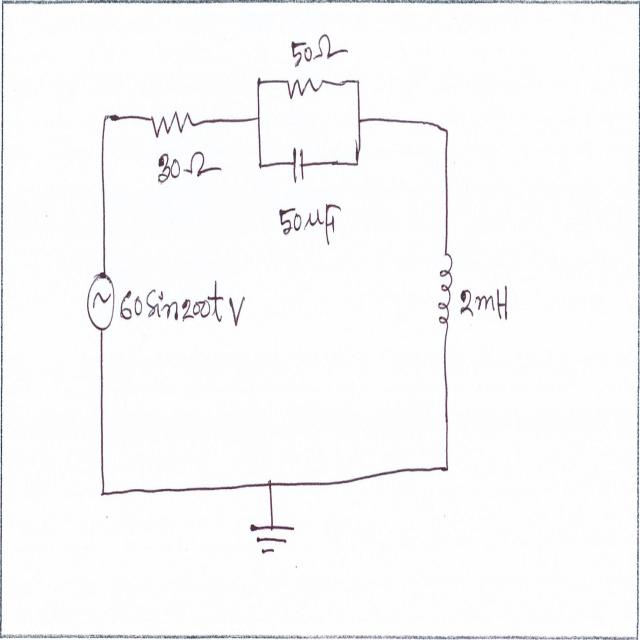 50Ω
30Ω
50μF
~ 60 Sin200t V
2mH